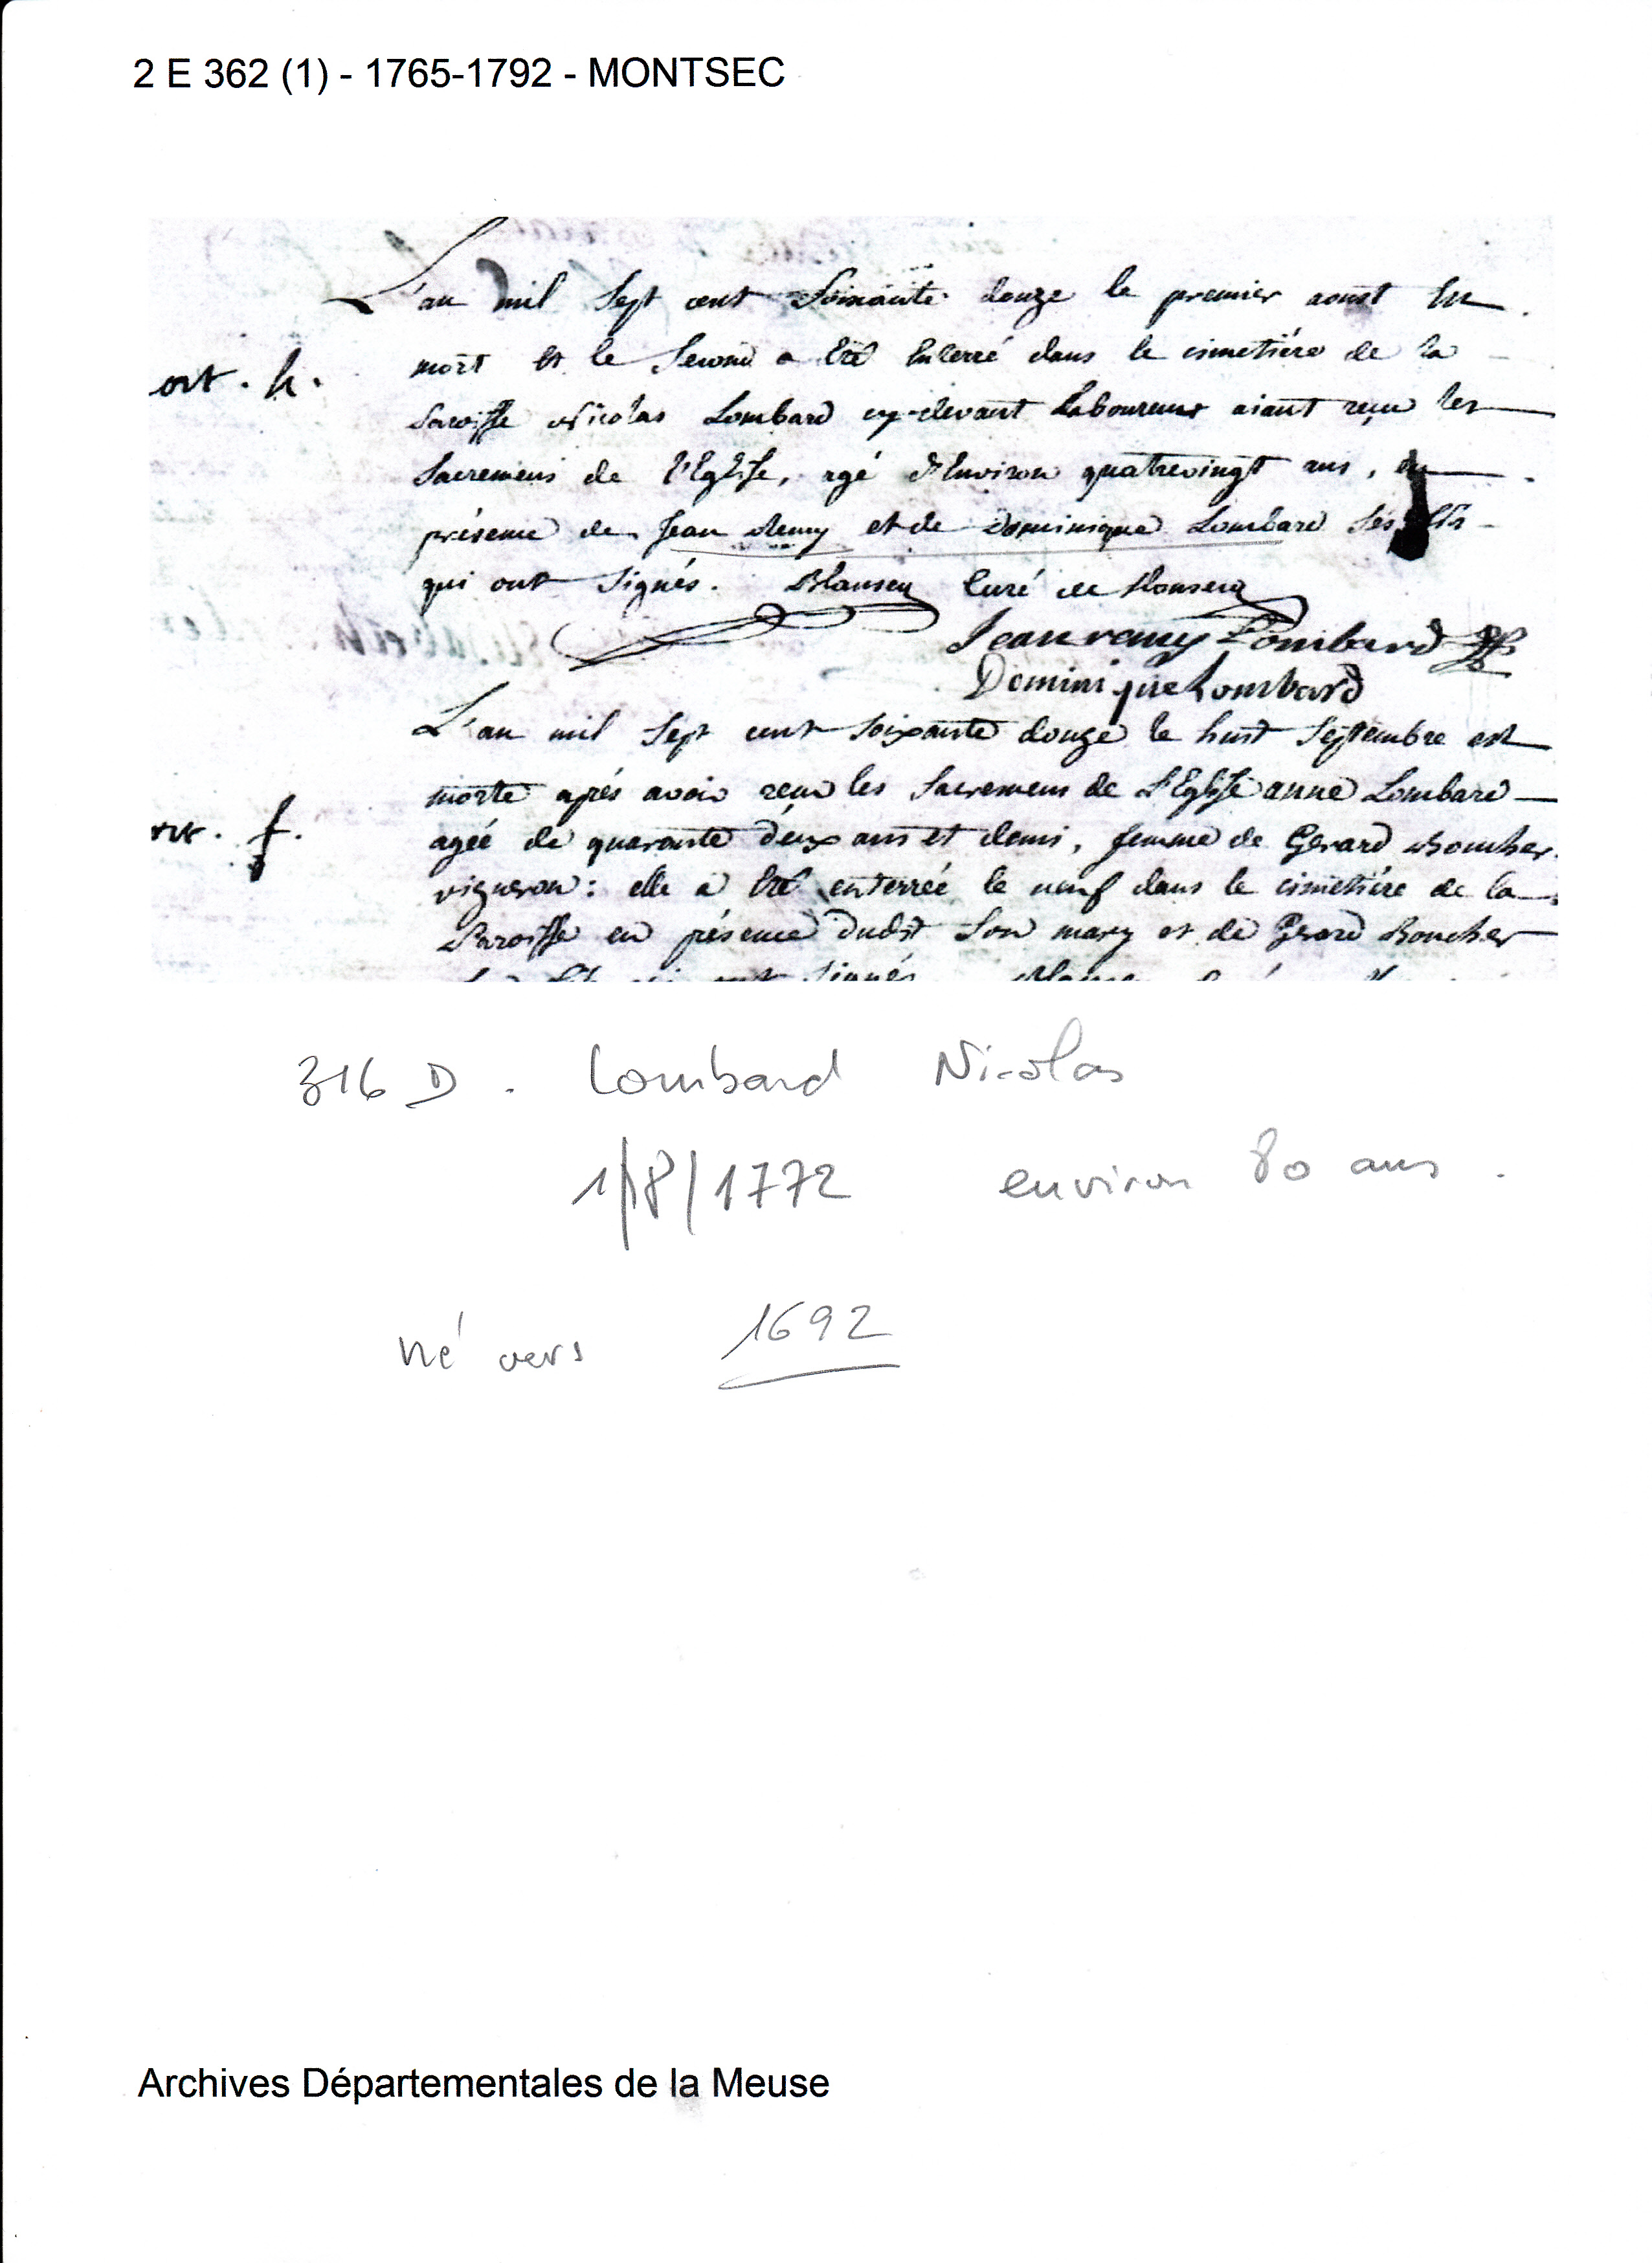 2 E 362 (1) - 1765-1792 - MONTSEC
L'an mil Sept cent Soixante douze le premier aoust Est
mort Et le Second a Eté Enterré dans le cimetiére de la
ort. h.
Paroisse Nicolas Lombard cy-devant Laboureur aiant reçu les
Sacremens de l'Eglise, agé d'Environ quatrevingt ans, en
présence de Jean Remy et de Dominique Lombard Ses fils
qui ont Signés. Blansey Curé de Monsecq
Jean remy Lombard
Dominique Lombard
L'an mil Sept cent Soixante douze le huit Septembre est
morte aprés avoir recu les Sacremens de L'Eglise anne Lombard
ort. f.
agée de quarante deux ans et demi, femme de Gerard Boucher
vigneron: elle a Eté enterrée le neuf dans le cimetiére de la
Paroisse en présence dudit Son mary et de Gerard Boucher
qui ont Signés
316 D. Lombard Nicolas
1/8/1772 environ 80 ans.
né vers 1692
Archives Départementales de la Meuse